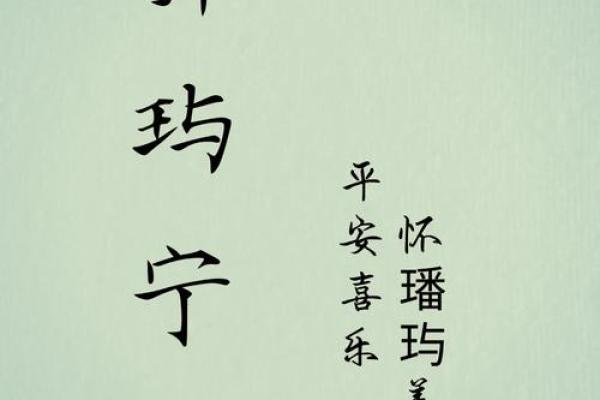 怀璠玙
平安喜乐
玙宁